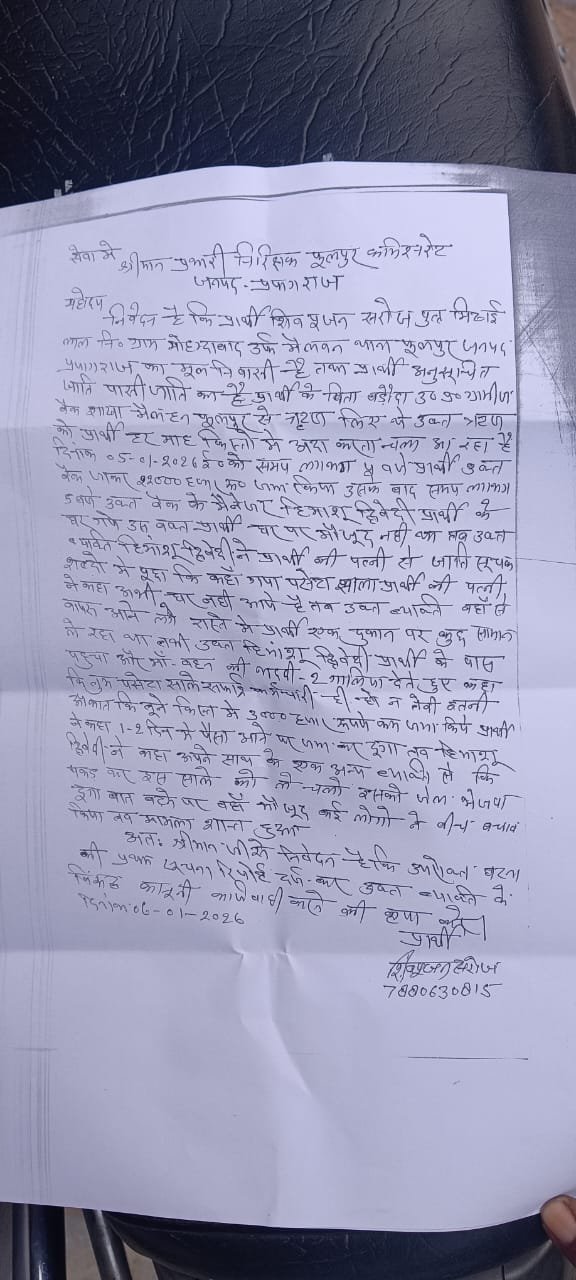 सेवा मे
श्रीमान प्रभारी निरिक्षक फूलपुर कमिश्नरेट
जनपद - प्रयागराज
महोदय
निवेदन है कि प्रार्थी शिव पूजन सरोज पुत्र मिठाई
लाल नि० ग्राम मोहदाबाद उर्फ मैलवन थाना फूलपुर जनपद
प्रयागराज का मूल निवासी है तथा प्रार्थी अनुसूचित
जाति पासी जाति का है प्रार्थी के पिता बड़ौदा उ० प्र० ग्रामीण
बैंक शाखा मैलहन फूलपुर से ऋण लिए थे उक्त ऋण
को प्रार्थी हर माह किस्तो मे अदा करता चला आ रहा है
दिनांक 05-01-2026 ई० को समय लगभग बजे प्रार्थी उक्त
बैंक जाकर 22000 हजार रू० जमा किया उसके बाद समय लगभग
5 बजे उक्त बैंक के मैनेजर हिमांशू द्विवेदी प्रार्थी के
घर गये उस वक्त प्रार्थी घर पर मौजूद नही था तब उक्त
व्यक्ति हिमांशू द्विवेदी ने प्रार्थी की पत्नी से जाति सूचक
शब्दो मे पूछा कि कहाँ गया पसेटा साला प्रार्थी की पत्नी
ने कहा अभी घर नही आये है तब उक्त व्यक्ति वहाँ से
वापस आने लगे रास्ते मे प्रार्थी एक दुकान पर कुछ सामान
ले रहा था तभी उक्त हिमांशू द्विवेदी प्रार्थी के पास
पहुचा और माँ-बहन की भद्दी-2 गालिया देते हुए कहा
कि तुम पसेटा साले कर्मचारी ही हो न तेरी इतनी
औकात कि तूने किस्त मे 3000 हजार रूपये कम जमा किये प्रार्थी
ने कहा 1-2 दिन मे पैसा आने पर जमा कर दूगा तब हिमांशू
द्विवेदी ने कहा अपने साथ के एक अन्य व्यक्ति से कि
पकड़ कर इस साले को ले चलो इसको जेल भेजवा
दूगा बात बढने पर वहाँ मौजूद कई लोगो ने बीच बचाव
किया तब मामला शान्त हुआ
अतः श्रीमान जी से निवेदन है कि उपरोक्त घटना
की प्रथम सूचना रिपोर्ट दर्ज कर उक्त व्यक्ति के
कानूनी कार्यवाही करने की कृपा करे।
दिनांक 06-01-2026
प्रार्थी
शिवपूजन सरोज
7880630815